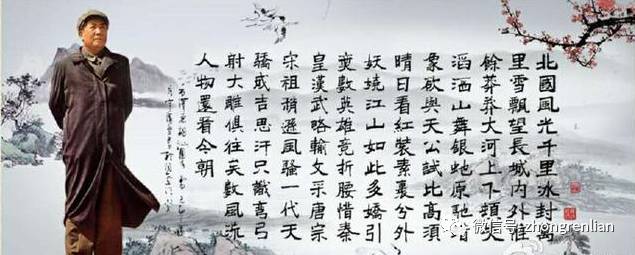 北國風光千里冰封萬
里雪飄望長城內外惟
餘莽莽大河上下頓失
滔滔山舞銀蛇原馳蠟
象欲與天公試比高須
晴日看紅裝素裹分外
妖嬈江山如此多嬌引
無數英雄競折腰惜秦
皇漢武略輸文采唐宗
宋祖稍遜風騷一代天
驕成吉思汗只識彎弓
射大雕俱往矣數風流
人物還看今朝
微信号: zhongrenlian